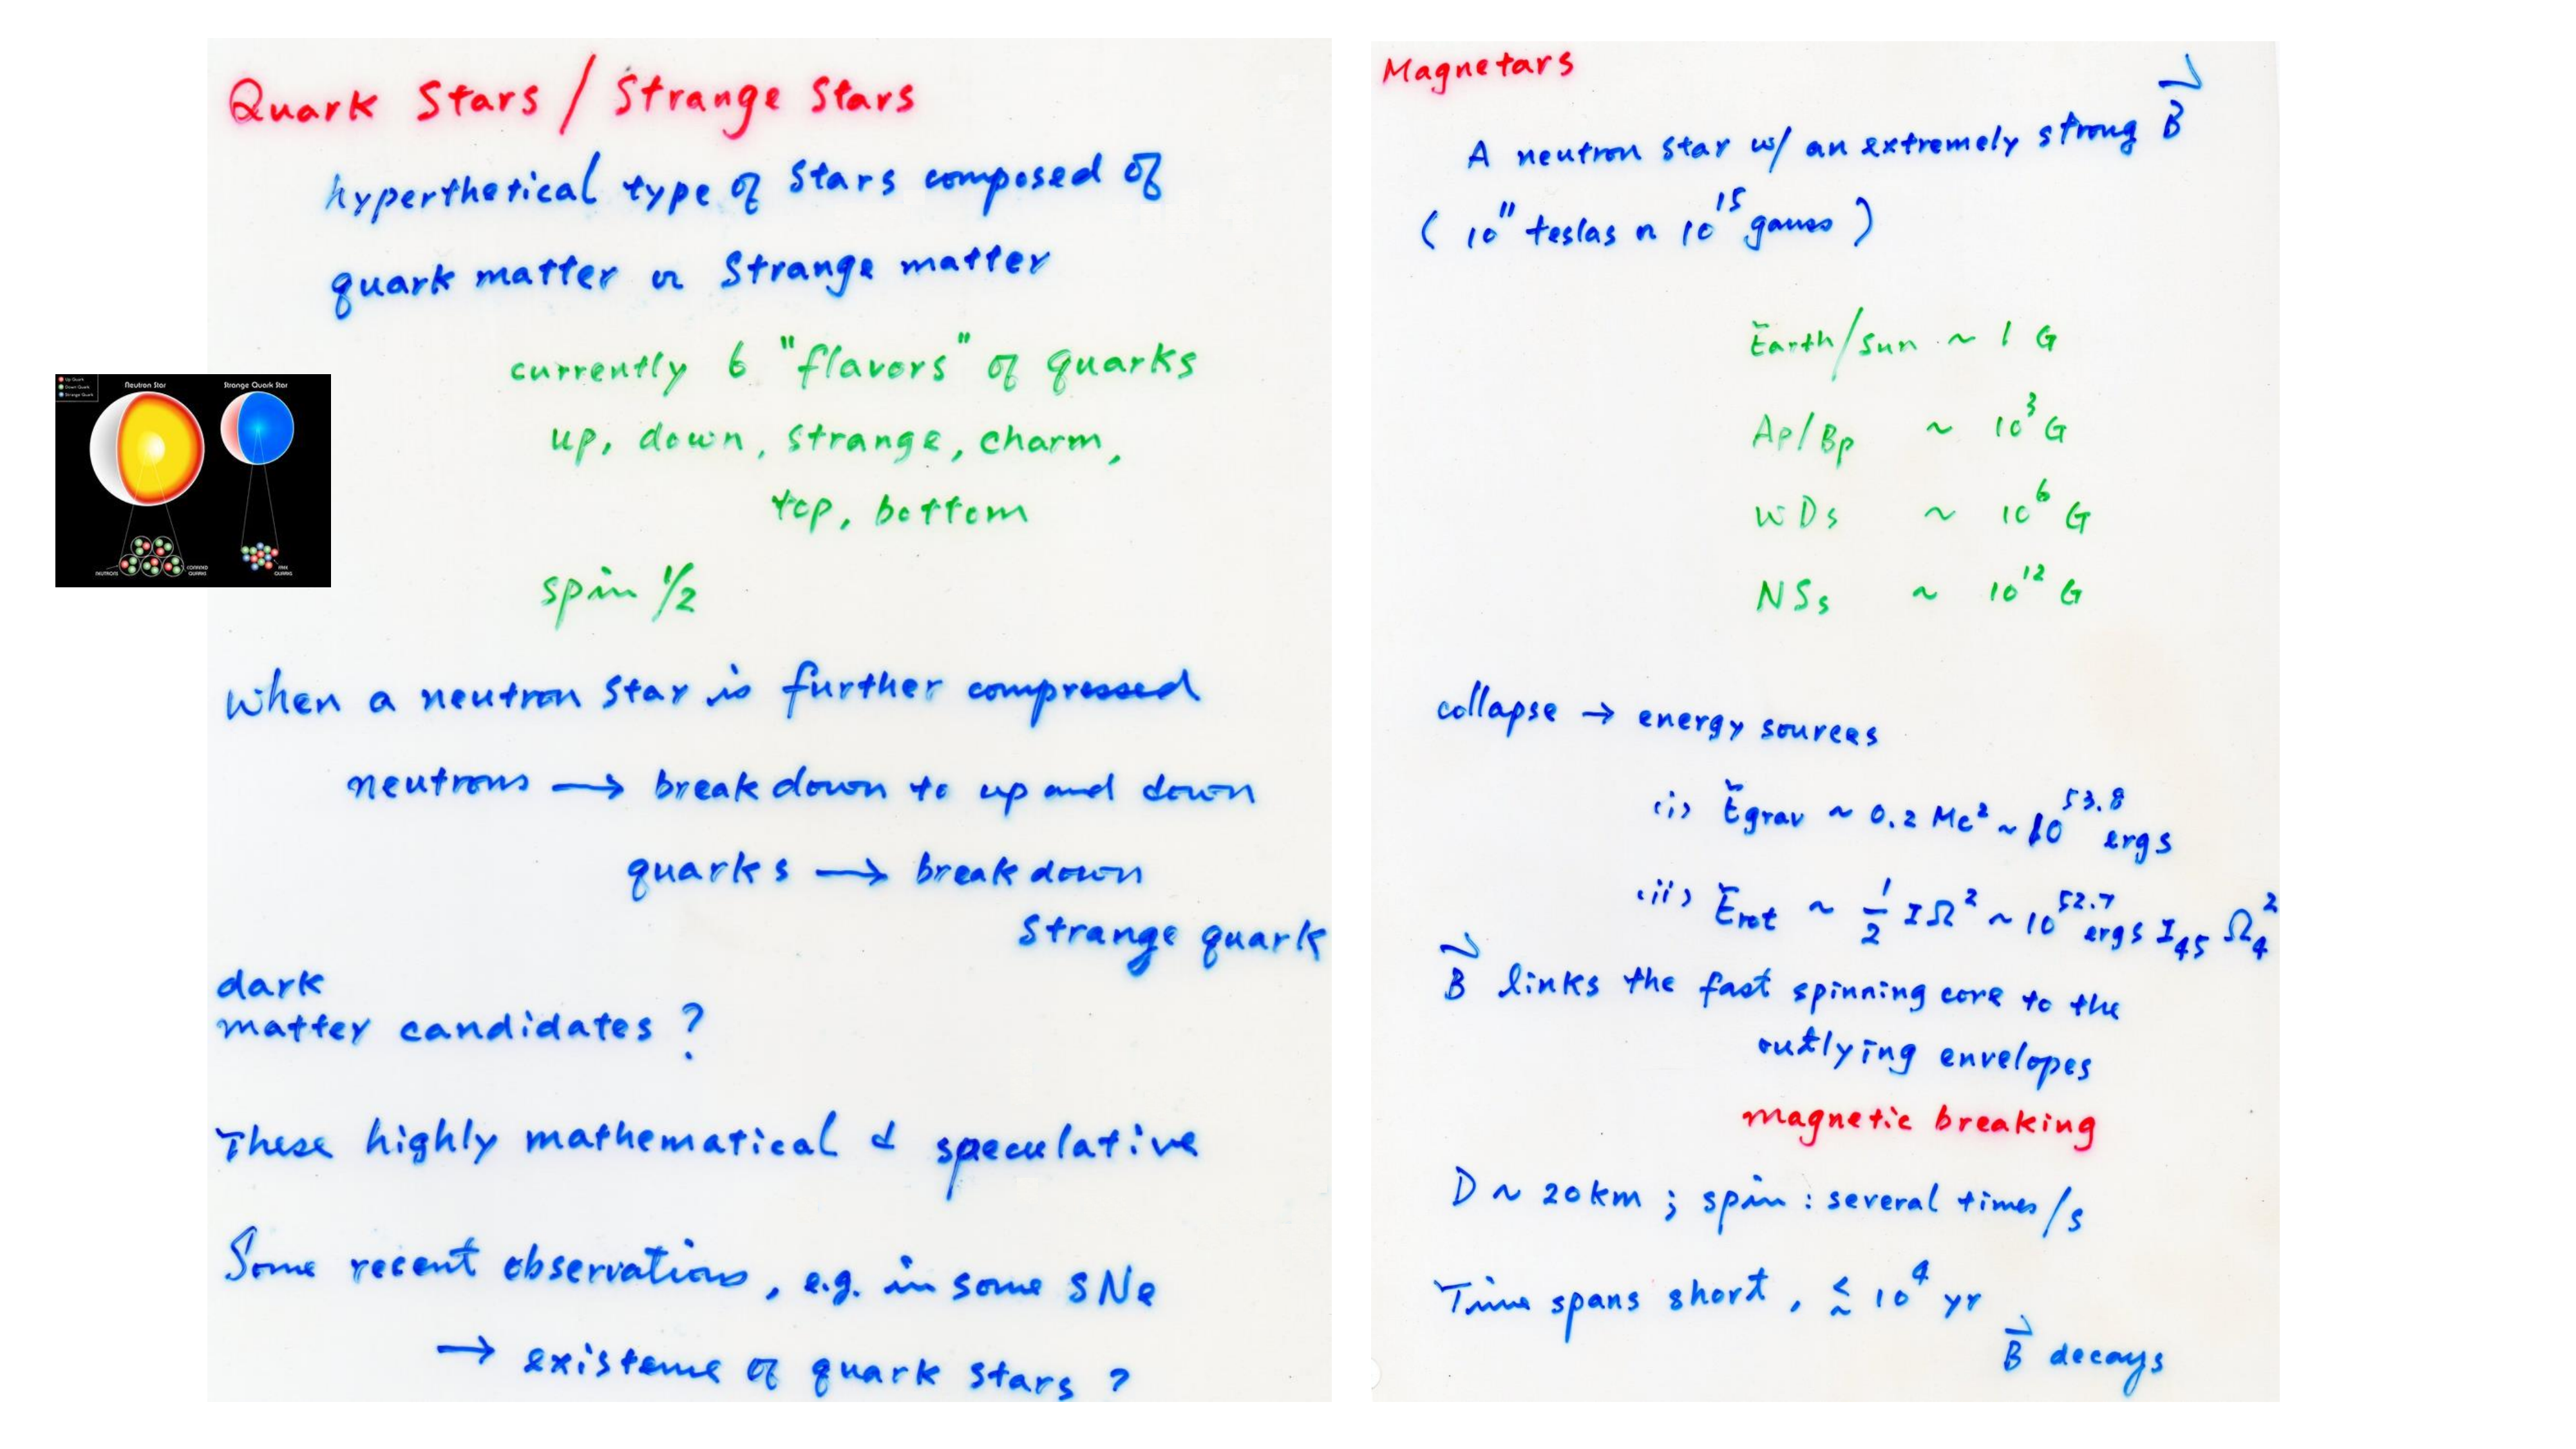 Quark Stars / Strange Stars
hyperthetical type of Stars composed of
quark matter or Strange matter
currently 6 "flavors" of quarks
up, down, strange, charm,
top, bottom
spin 1/2
Up Quark
Down Quark
Strange Quark
Neutron Star
Strange Quark Star
NEUTRONS
CONFINED
QUARKS
FREE
QUARKS
When a neutron star is further compressed
neutrons → break down to up and down
quarks → break down
Strange quark
dark
matter candidates ?
These highly mathematical & speculative
Some recent observations, e.g. in some SNe
→ existence of quark stars ?
Magnetars
A neutron star w/ an extremely strong B⃗
( 10¹¹ teslas or 10¹⁵ gauss )
Earth/Sun ~ 1 G
Ap/Bp ~ 10³ G
WDs ~ 10⁶ G
NSs ~ 10¹² G
collapse → energy sources
(i) Egrav ~ 0.2 Mc² ~ 10⁵³·⁸ ergs
(ii) Erot ~ 1/2 IΩ² ~ 10⁵²·⁷ ergs I₄₅ Ω₄²
B⃗ links the fast spinning core to the
outlying envelopes
magnetic breaking
D ~ 20 km ; spin : several times/s
Time spans short, ≲ 10⁴ yr
B⃗ decays